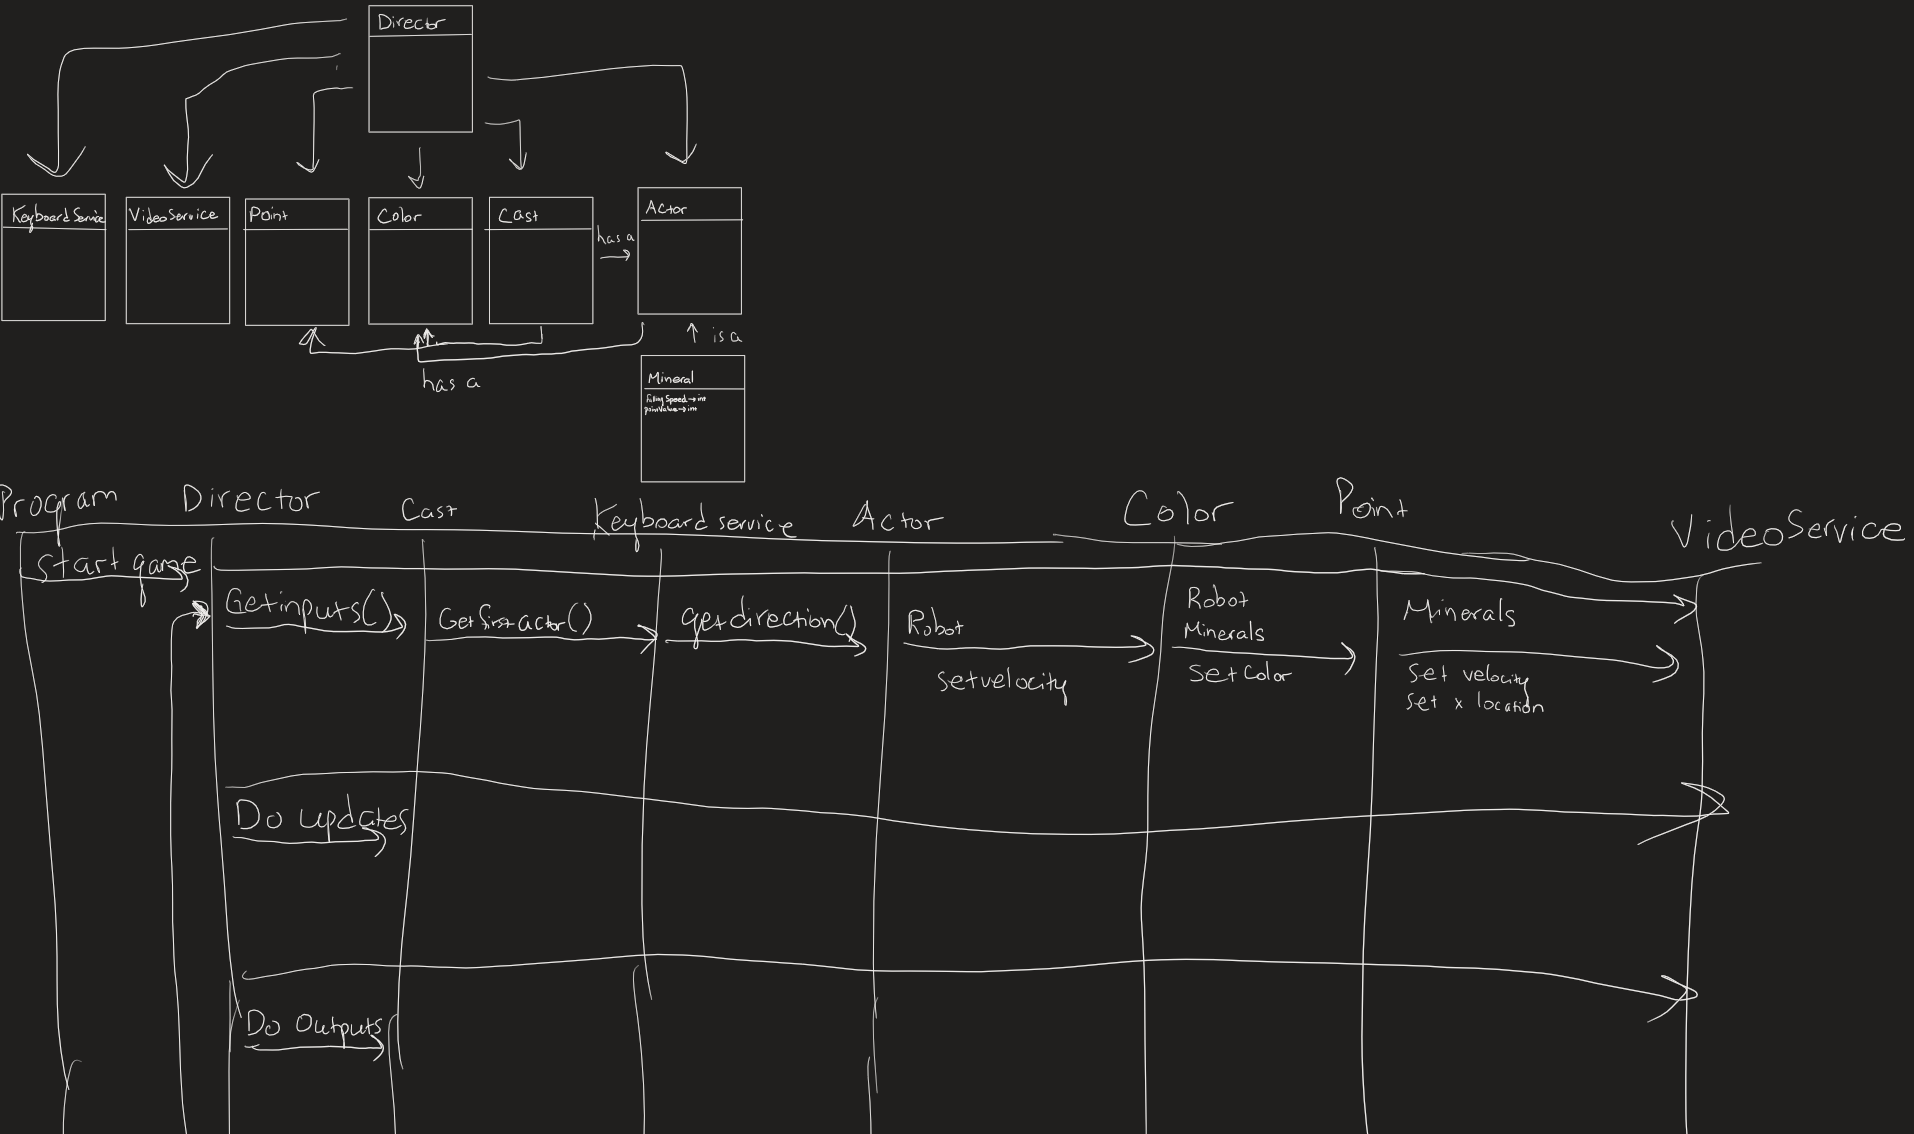 Director
Keyboard Service
Video Service
Point
Color
Cast
has a
Actor
is a
has a
Mineral
fallingSpeed→int
pointValue→int
Program
Director
Cast
Keyboard service
Actor
Color
Point
VideoService
start game
Getinputs()
Getfirstactor()
getdirection()
Robot
setvelocity
Robot
Minerals
Set Color
Minerals
Set velocity
Set x location
Do updates
Do Outputs